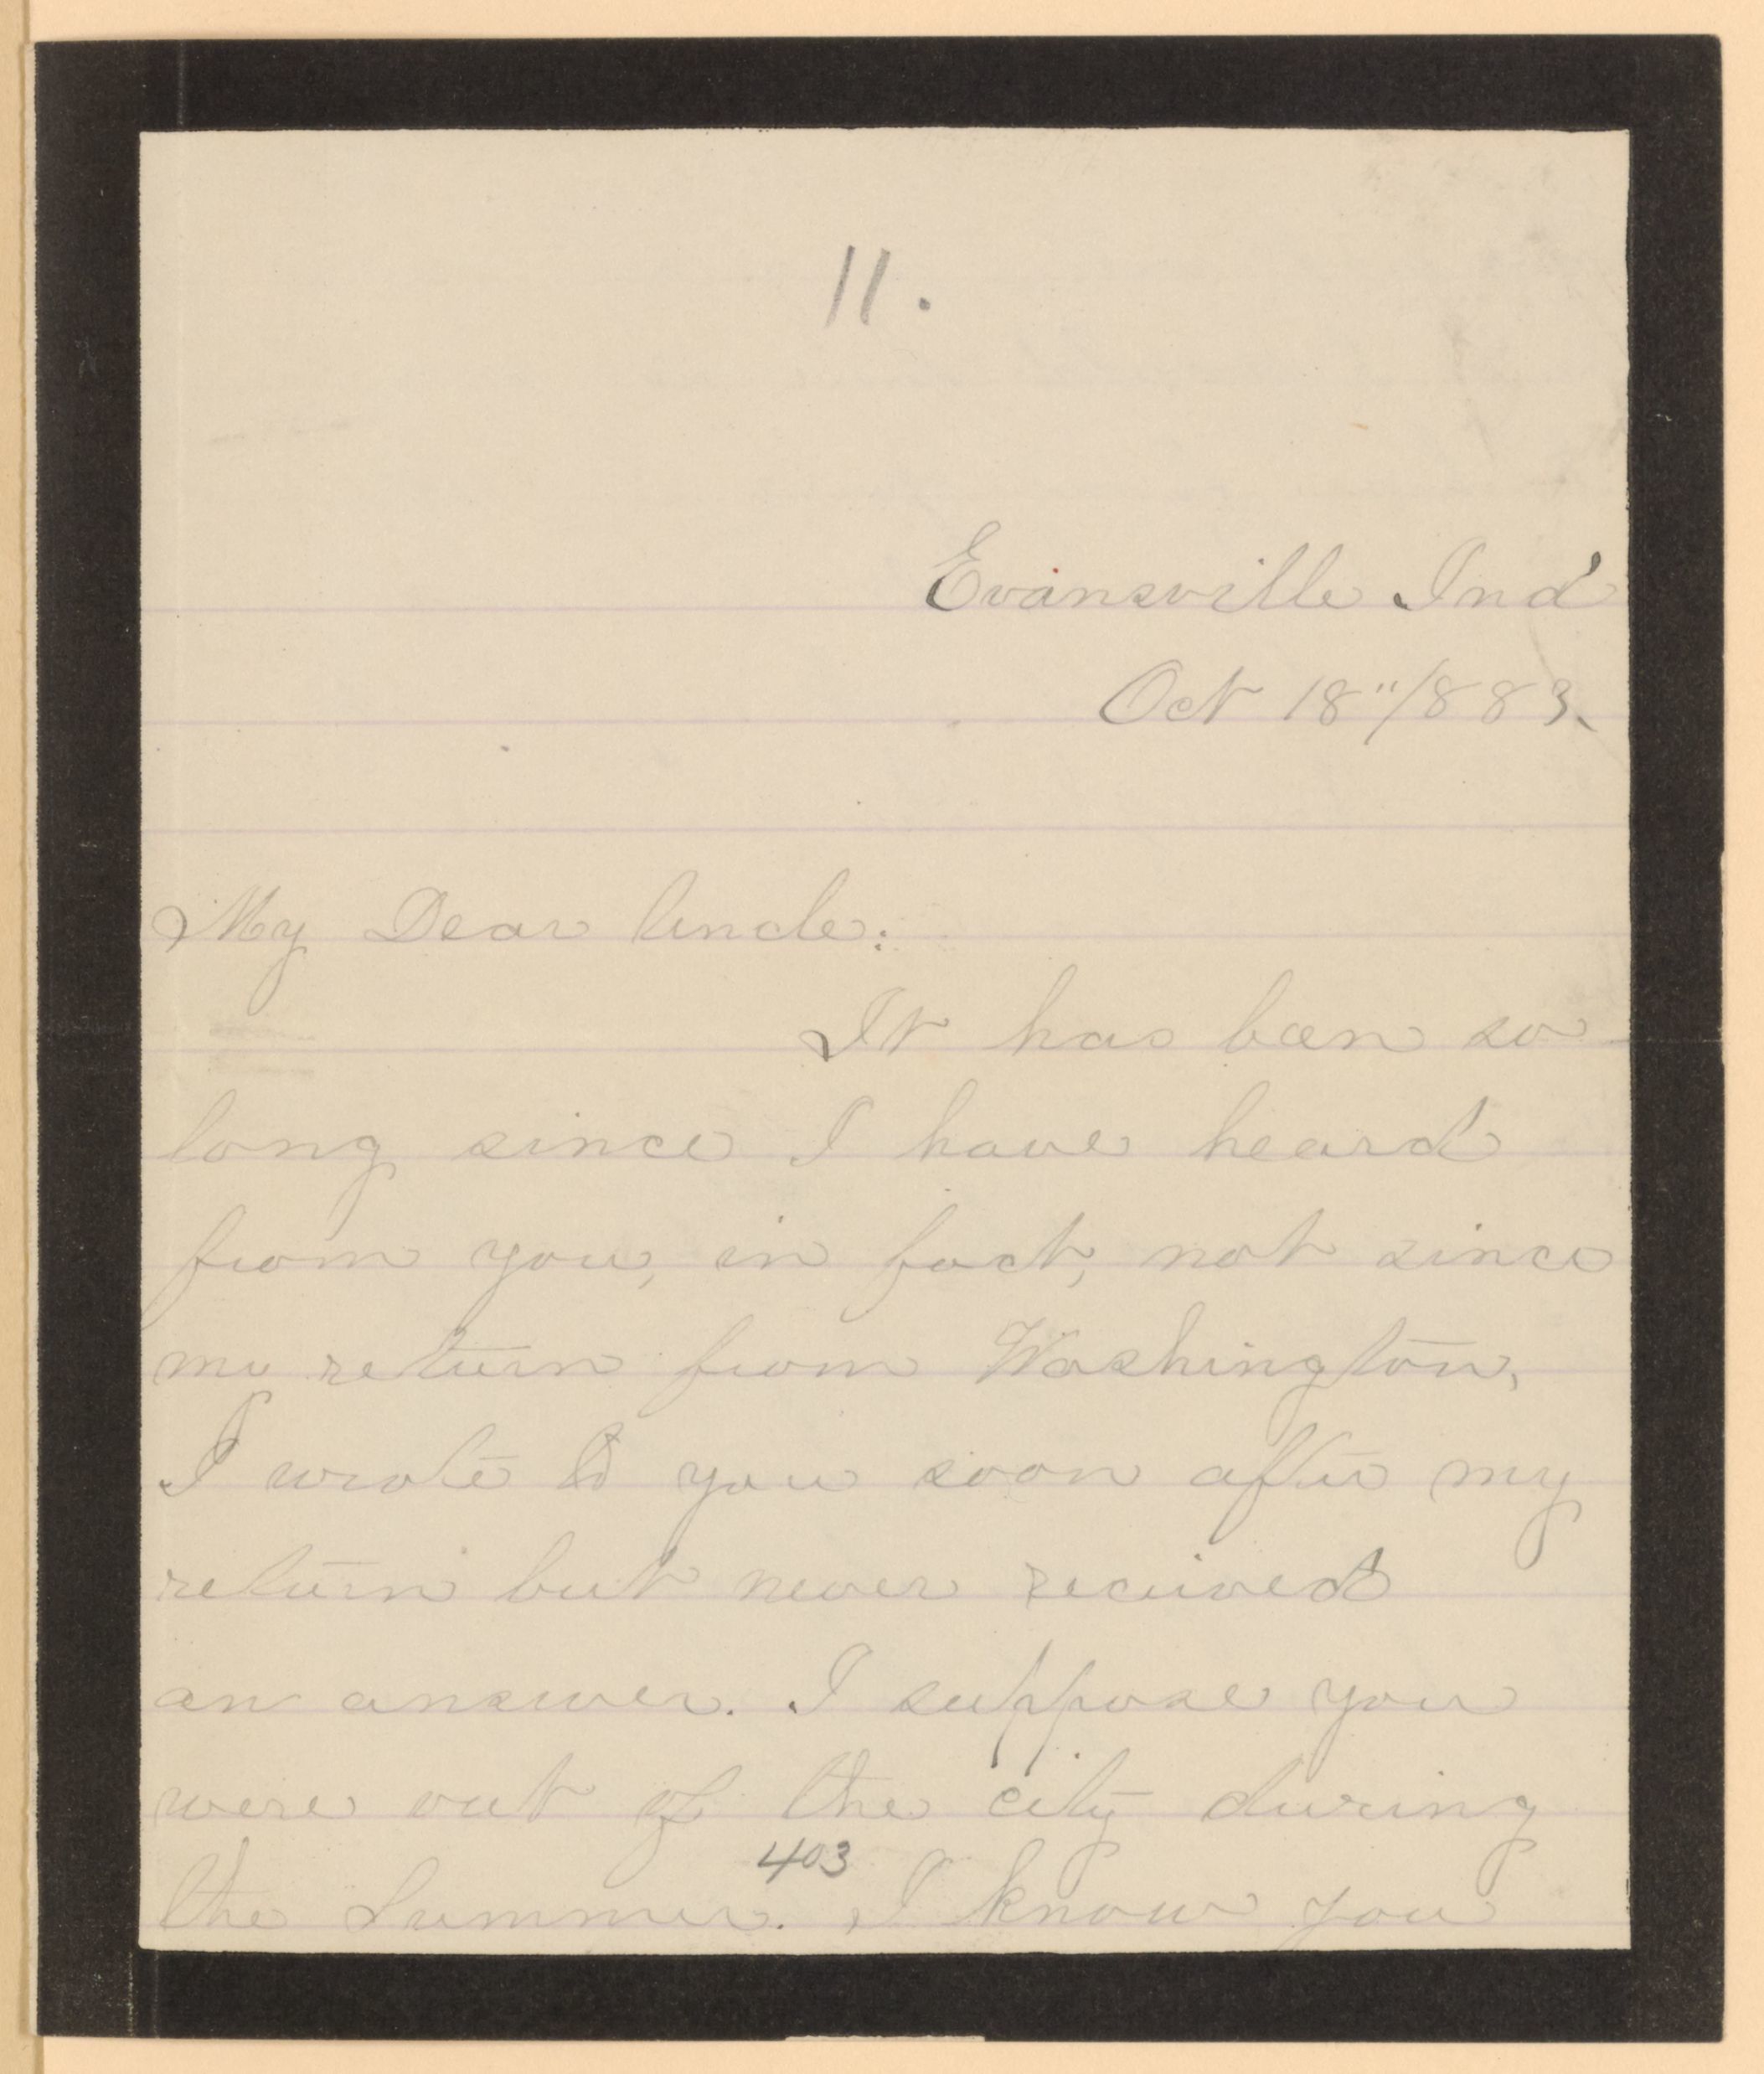 11.
Evansville Ind
Oct 18"/883.
My Dear Uncle:
It has been so
long since I have heard
from you, in fact, not since
my return from Washington,
I wrote to you soon after my
return but never recieved
an answer. I suppose you
were out of the city during
403
the Summer. I know you